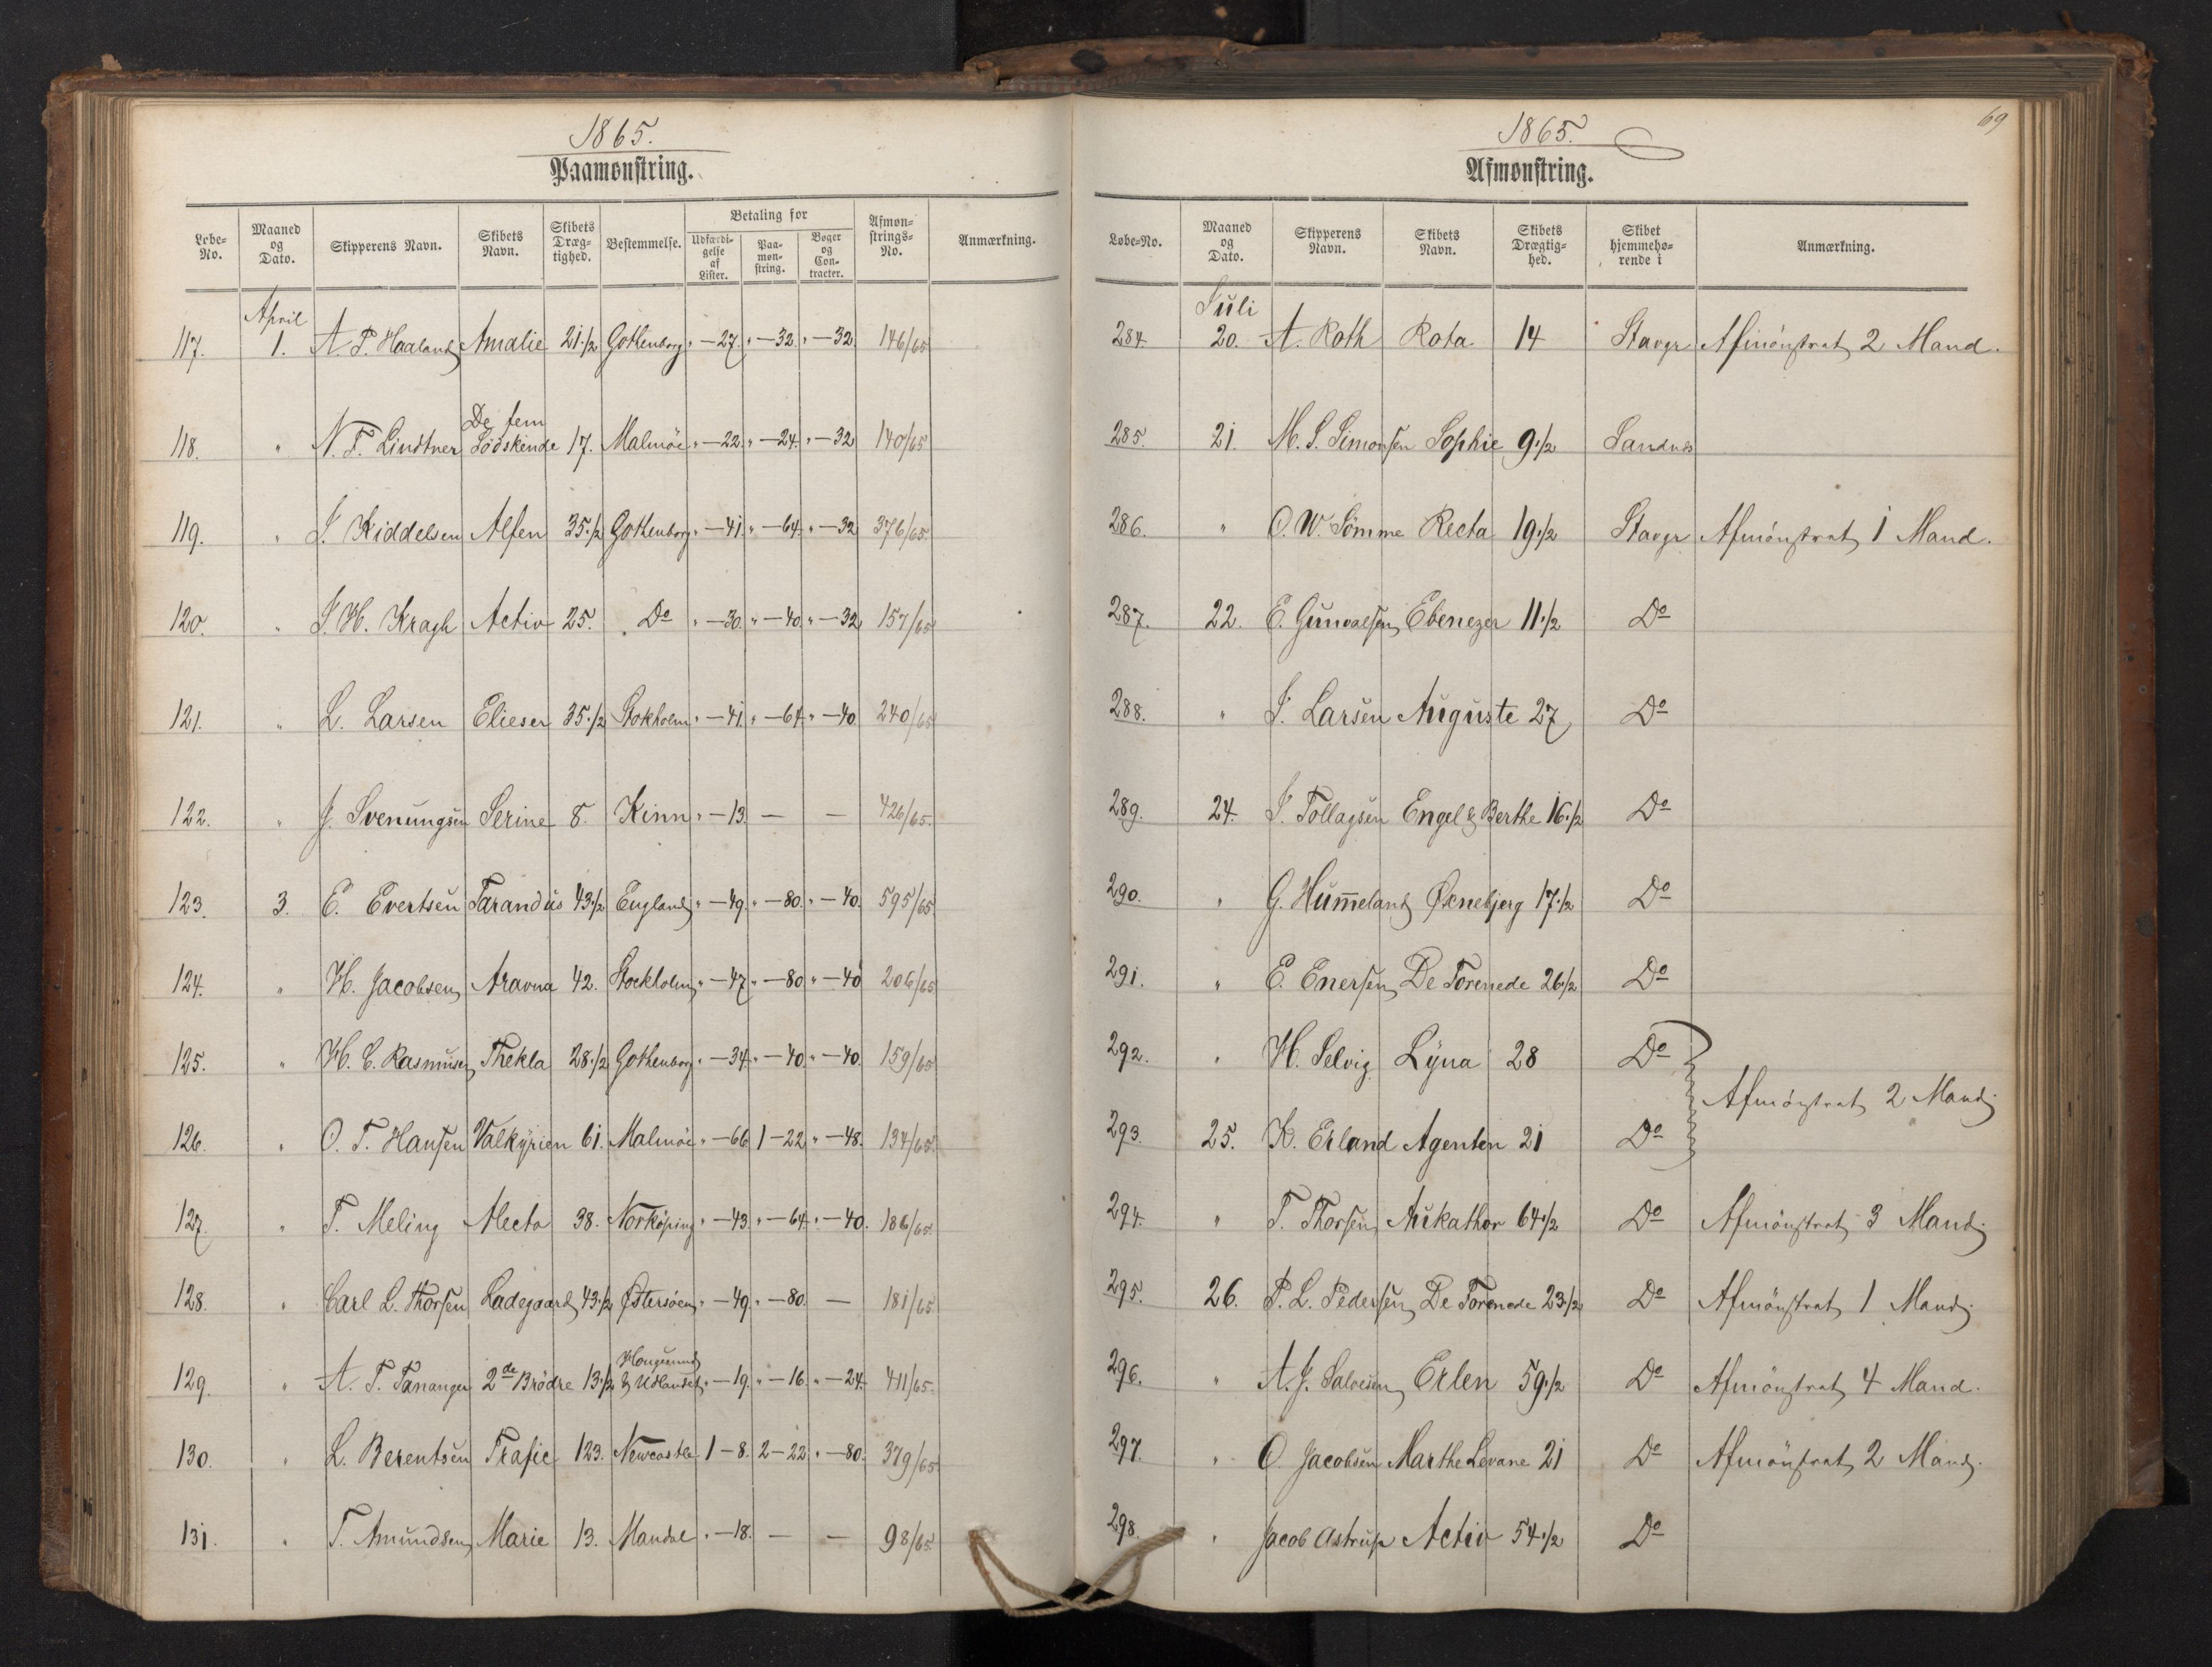 1865.
Paamønstring.
Løbe-No. | Maaned og Dato. | Skipperens Navn. | Skibets Navn. | Skibets Drægtighed. | Bestemmelse. | Betaling for: Udfærdigelse af Lister. | Paamønstring. | Bøger og Contracter. | Afmønstrings-No. | Anmærkning.
117. | April 1. | A. T. Haaland | Amalie | 21 1/2 | Gothenborg | " — 27. | " — 32. | " — 32 | 146/65
118. | " | N. T. Lindtner | De fem Södskende | 17. | Malmöe | " — 22. | " — 24. | " — 32 | 140/65
119. | " | J. Kiddelsen | Alfen | 35 1/2 | Gothenborg | " — 41. | " — 64. | " — 32 | 376/65
120. | " | J. H. Kragh | Activ | 25. | Do | " — 30. | " — 40. | " — 32 | 157/65
121. | " | L. Larsen | Elieser | 35 1/2 | Stokholm | " — 41. | " — 64. | " — 40 | 240/65
122. | " | J. Svenungsen | Serine | 8. | Kinn | " — 13. | — | — | 426/65.
123. | 3. | E. Evertsen | Tarandus | 43 1/2 | England | " — 49. | " — 80. | " — 40. | 595/65
124. | " | H. Jacobsen | Aravna | 42. | Stockholm | " — 47 | " — 80 | " — 40 | 206/65
125. | " | H. C. Rasmusen | Thekla | 28 1/2 | Gothenborg | " — 34. | " — 40. | " — 40. | 159/65
126. | " | O. T. Hansen | Valkÿrien | 61. | Malmöe | " — 66 | 1 — 22 | " — 48. | 134/65.
127. | " | T. Meling | Alecto | 38. | Norköping | " — 43. | " — 64. | " — 40. | 186/65.
128. | " | Carl L. Thorsen | Ladegaard | 43 1/2 | Østersöen | " — 49. | " — 80. | — | 181/65
129. | " | A. T. Tananger | 2de Brödre | 13 1/2 | Haugesund & Udlandet | " — 19. | " — 16. | " — 24. | 411/65.
130. | " | L. Berentsen | Trafic | 123. | Newcastle | 1 — 8. | 2 — 22 | " — 80. | 379/65
131. | " | T. Amundsen | Marie | 13. | Mandal | " — 18. | — | — | 98/65.
69
1865.
Afmønstring.
Løbe-No. | Maaned og Dato. | Skipperens Navn. | Skibets Navn. | Skibets Drægtighed. | Skibet hjemmehørende i | Anmærkning.
284. | Juli 20. | A. Roth | Rota | 14 | Stavgr | Afmönstrat 2 Mand.
285. | 21. | M. S. Simonsen | Sophie | 9 1/2 | Sandnæs
286. | " | O. W. Sömme | Recta | 19 1/2 | Stavgr | Afmönstrat 1 Mand.
287. | 22. | E. Gunvalsen | Ebenezer | 11 1/2 | Do
288. | " | J. Larsen | Auguste | 27 | Do
289. | 24. | J. Tollagsen | Engel & Berthe | 16 1/2 | Do
290. | " | G. Hummeland | Øxnebjerg | 17 1/2 | Do
291. | " | E. Enersen | De Forenede | 26 1/2 | Do
292. | " | H. Selvig | Lÿna | 28 | Do
Afmönstrat 2 Mand.
293. | 25. | K. Erland | Agenten | 21 | Do
294. | " | T. Thorsen | Aukathor | 64 1/2 | Do | Afmönstrat 3 Mand.
295. | 26. | P. L. Pedersen | De Forenede | 23 1/2 | Do | Afmönstrat 1 Mand.
296. | " | A. J. Salvesen | Erlen | 59 1/2 | Do | Afmönstrat 4 Mand.
297. | " | O. Jacobsen | Marthe Levane | 21 | Do | Afmönstrat 2 Mand.
298. | " | Jacob Astrup | Activ | 54 1/2 | Do